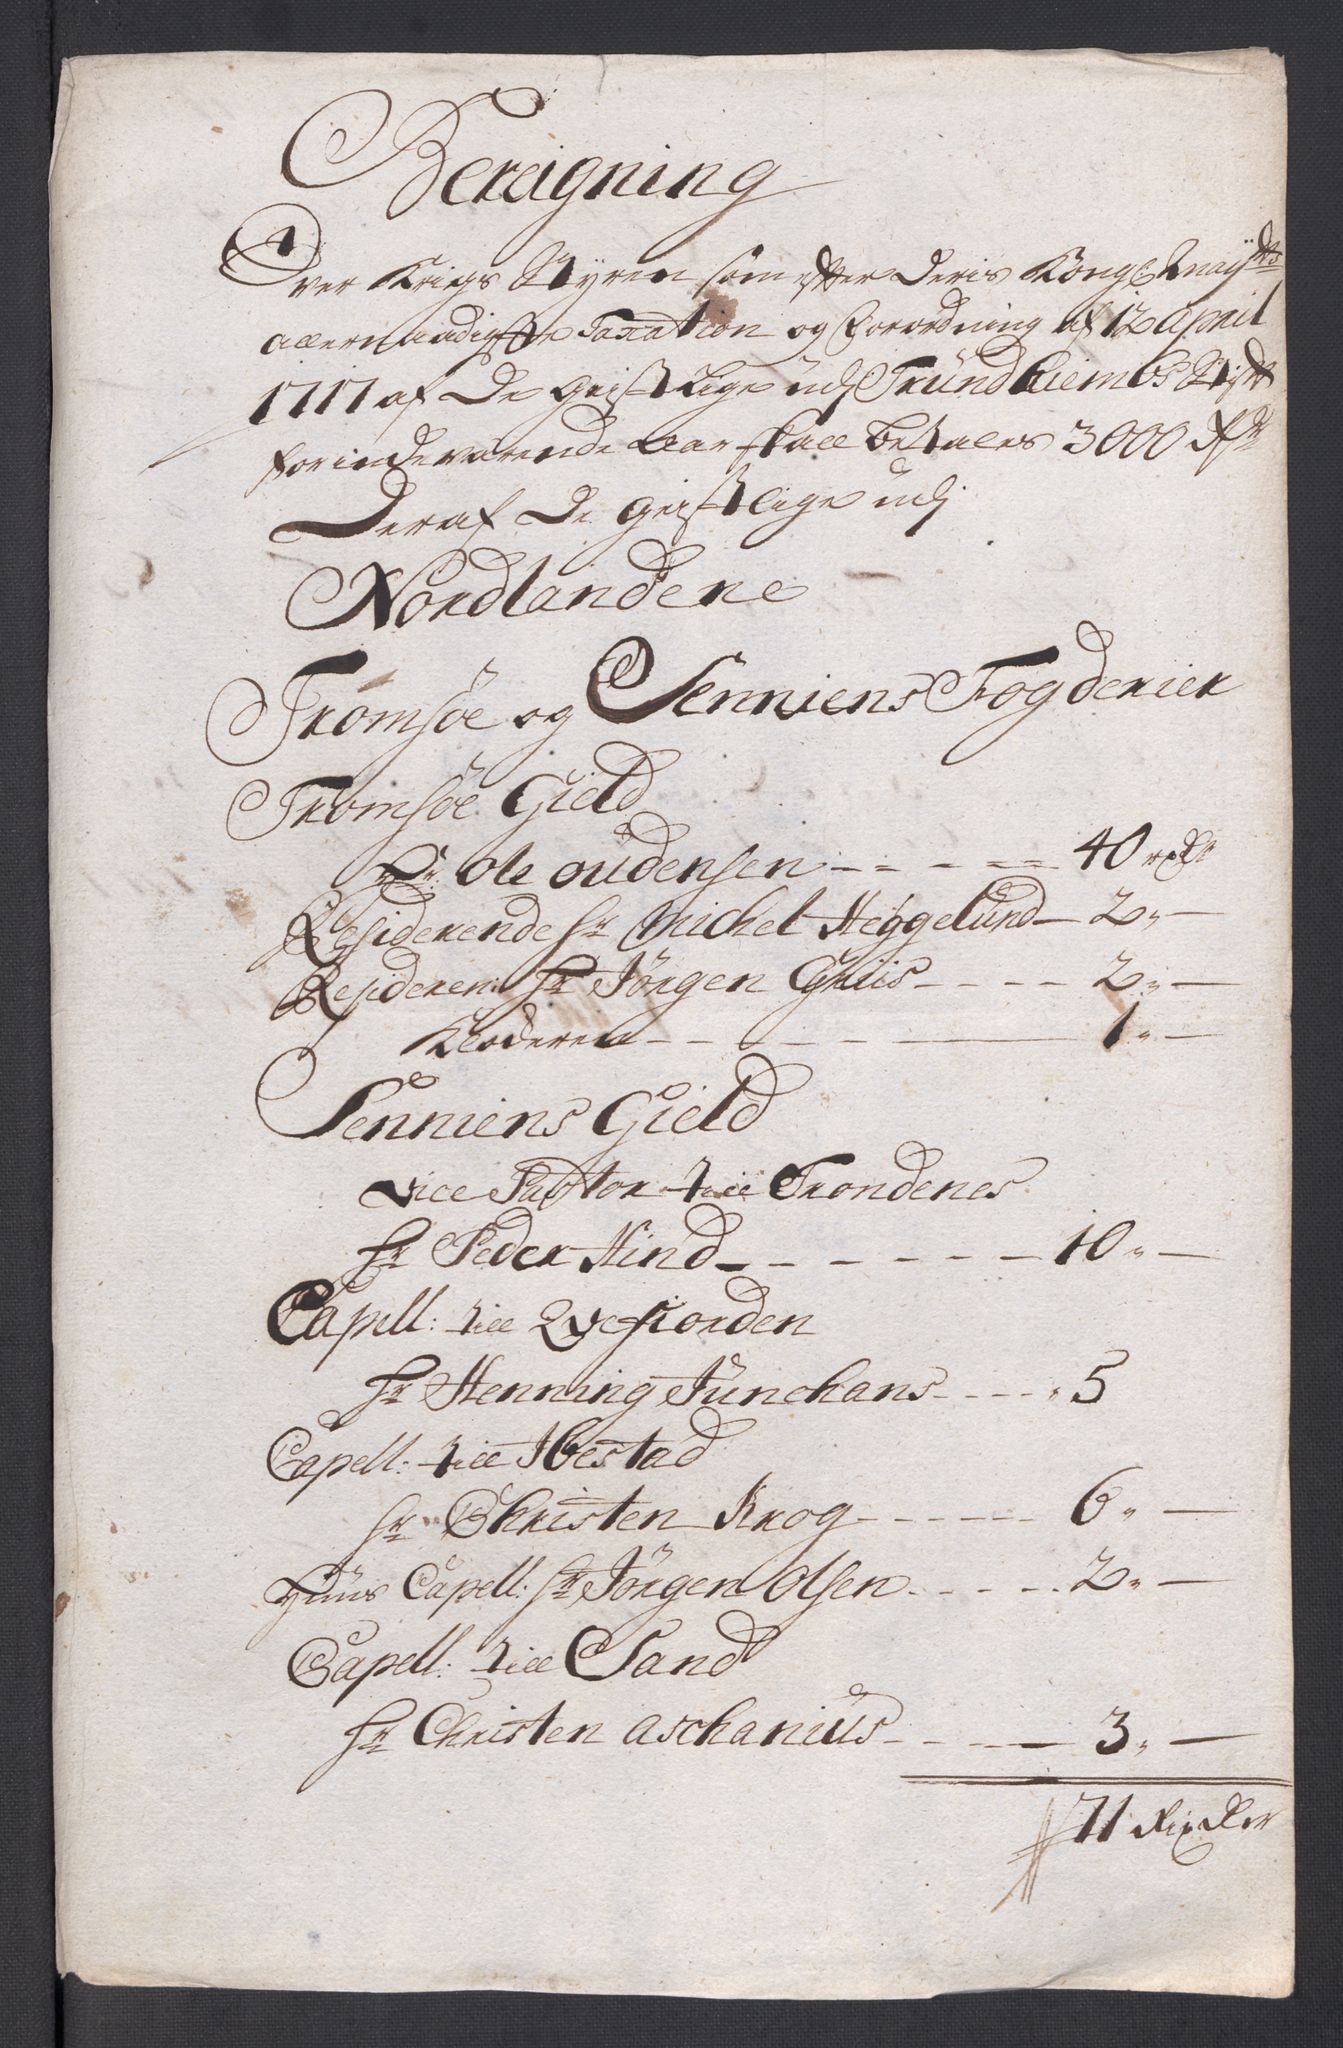 Bereigning
Over Krigs Styren som efter Deris Kongl Mayts
allernaadigste Taxation og Forordning af 12 april
1717 af De Geistlige udj Trundhiembs Stift
for indeværende Aar skall betales 3000 Rdr
Deraf De Geistlige udj
Nordlandene
Tromsöe og Senniens Fogderier
Tromsöe Gield
Hr: Ole oudensen - - - - - 40 rdr
Residerende hr Michel Heggelund - 2 " -
Resideren: hr Jörgen Griis - - - - 2 " -
Klocheren - - - - - 1 " -
Senniens Gield
vice Pastor till Trondenes
hr Peder Hind - - - - - - 10 " -
Capell: till Qvefiorden
hr Henning Junchans - - - - " 5
Capell: till Ibestad
hr Christen Krog - - - - - - 6 " -
Huus Capell: hr Jörgen Olsen - - - - 2 " -
Capell: till Sand
hr Christen aschanius - - - - - 3 " -
71 Rixdlr